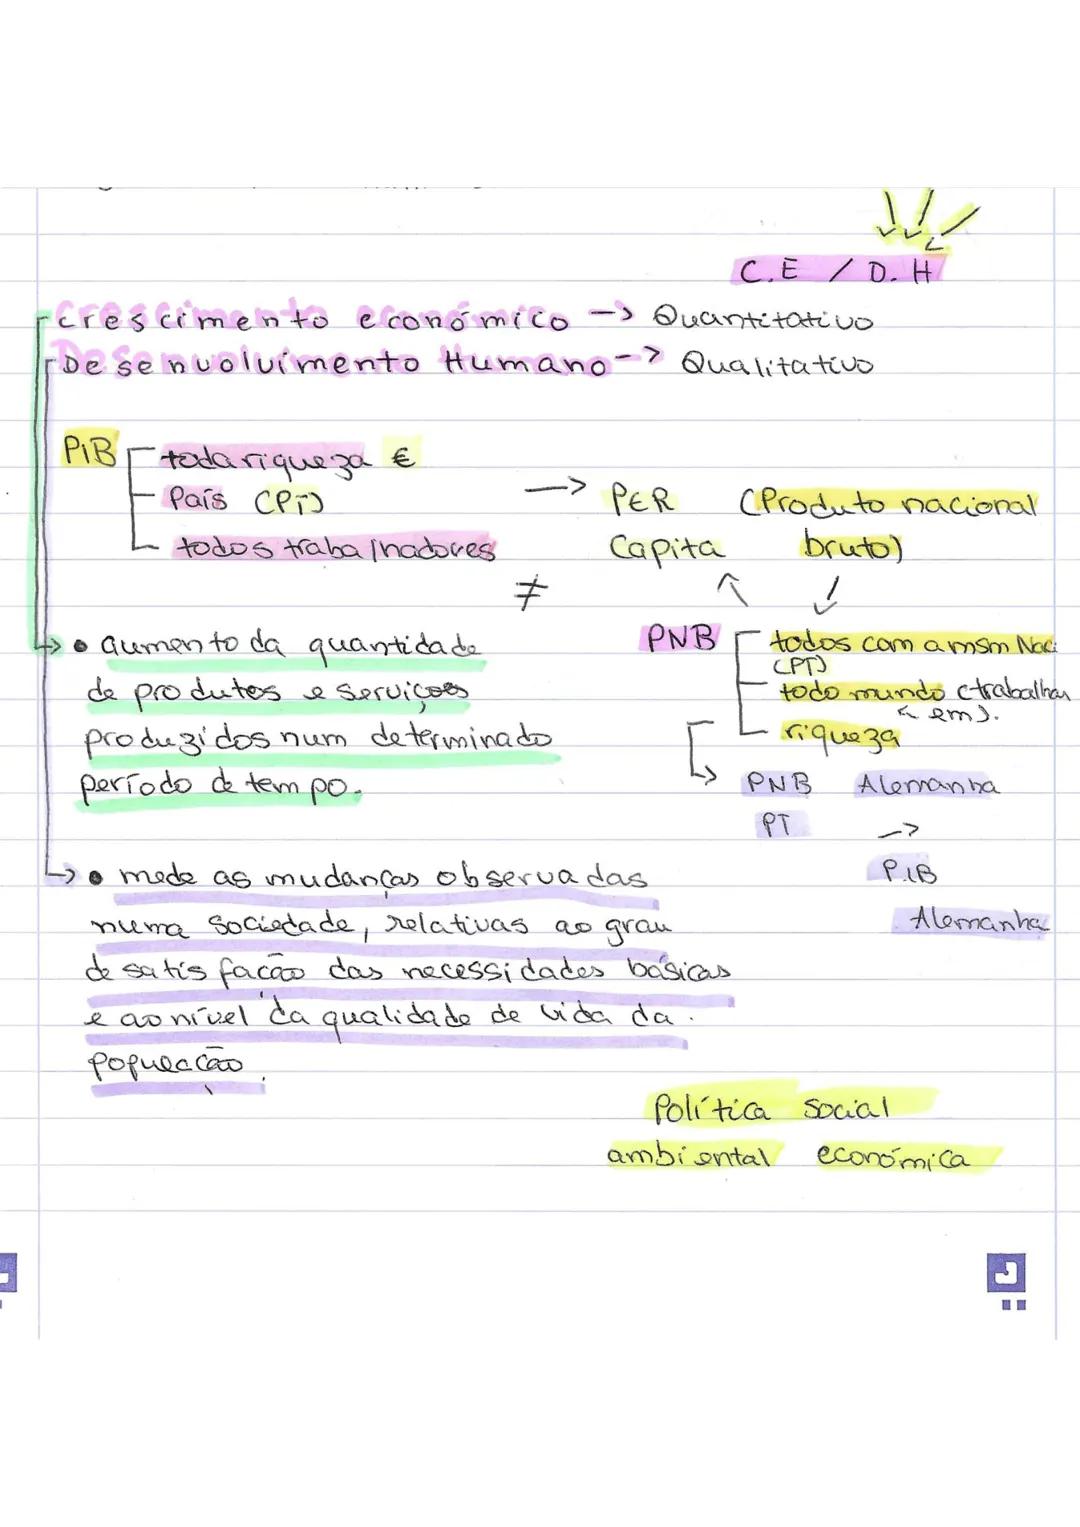 C.E / D.H
Crescimento económico -> Quantitativo
Desenvolvimento Humano -> Qualitativo
PIB
toda riqueza €
País (PT)
todos trabalhadores
-> PER (Produto nacional
Capita bruto)
≠
PNB
todos com a msm Naci
(PT)
todo mundo (trabalham
em).
riqueza
• aumento da quantidade
de produtos e serviços
produzidos num determinado
período de tempo.
PNB Alemanha
PT ->
PIB
Alemanha
• mede as mudanças observadas
numa sociedade, relativas ao grau
de satisfação das necessidades básicas
e ao nível da qualidade de vida da
população.
Política social
ambiental económica